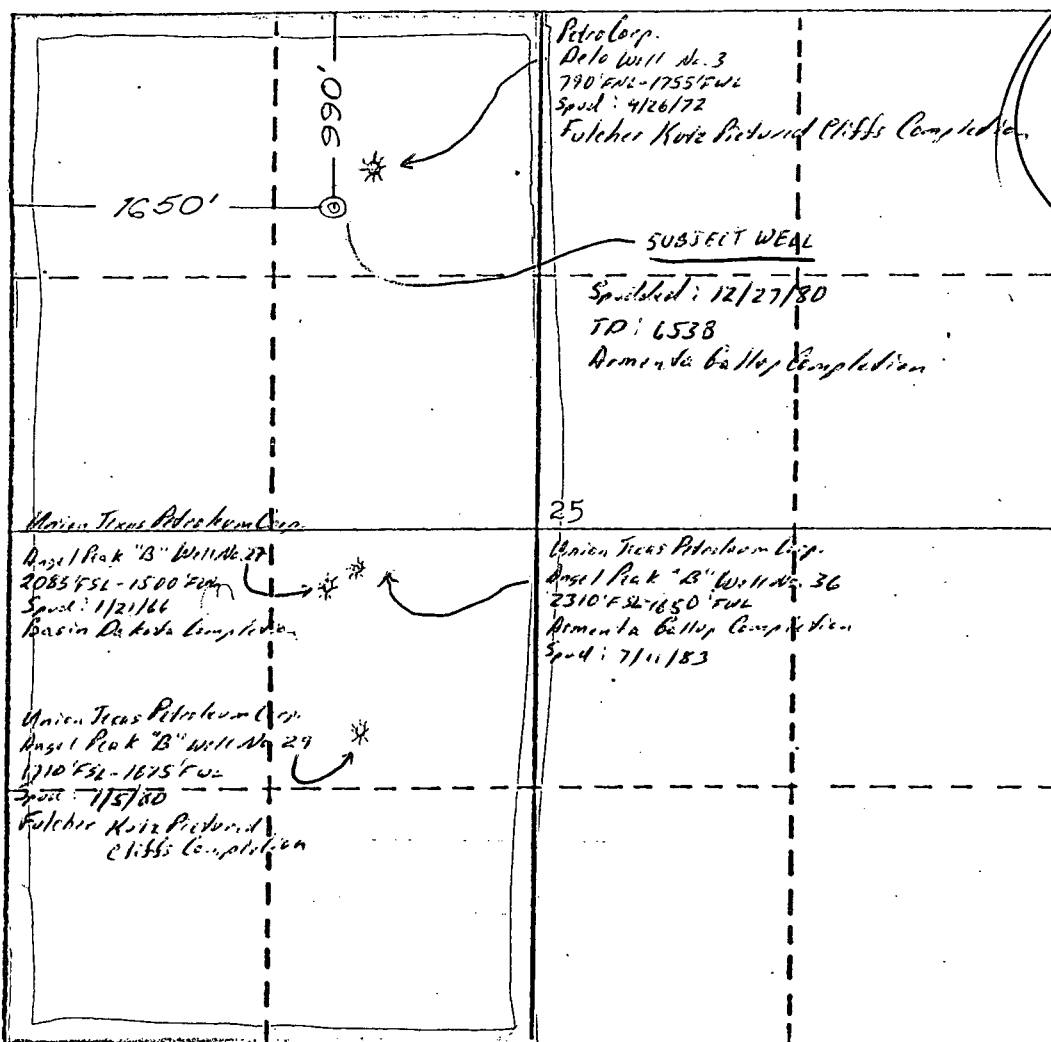 PetroCorp.
Delo Well No. 3
790'FNL-1755'FWL
Spud: 4/26/72
Fulcher Kutz Pictured Cliffs Completion
990'
1650'
SUBJECT WELL
Spudded: 12/27/80
TD: 6538
Armenta Gallup Completion
25
Union Texas Petroleum Corp.
Angel Peak "B" Well No. 27
2085'FSL-1500'FWL
Spud: 1/21/66
Basin Dakota Completion
Union Texas Petroleum Corp.
Angel Peak "B" Well No. 36
2310'FSL-1650'FWL
Armenta Gallup Completion
Spud: 7/11/83
Union Texas Petroleum Corp.
Angel Peak "B" Well No 29
1710'FSL-1675'FWL
Spud: 1/5/80
Fulcher Kutz Pictured
Cliffs Completion